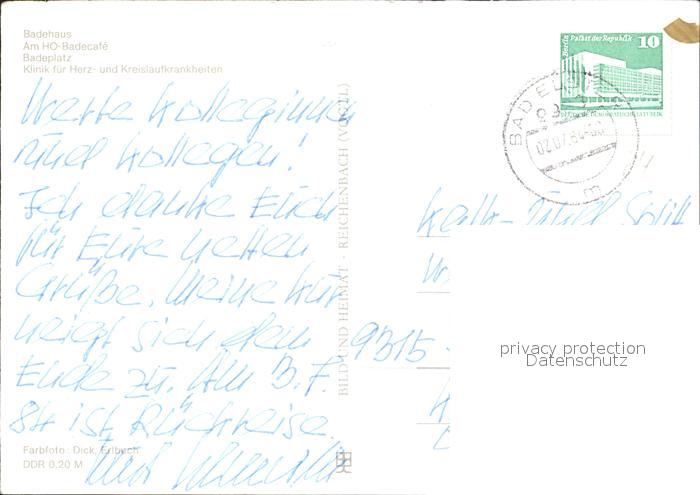 Badehaus
Am HO-Badecafé
Badeplatz
Klinik für Herz- und Kreislaufkrankheiten
Werte Kolleginnen
und Kollegen!
Ich danke Euch
für Eure netten
Grüße. Meine Kur
neigt sich dem
Ende zu. Am 3.7.
84 ist Rückreise.
Farbfoto: Dick, Erlbach
DDR 0,20 M
BILD UND HEIMAT · REICHENBACH (VOGTL)
Berlin Palast der Republik 10
DEUTSCHE DEMOKRATISCHE REPUBLIK
BAD ELSTER
02.07.84
Kalk- und
9315
privacy protection
Datenschutz